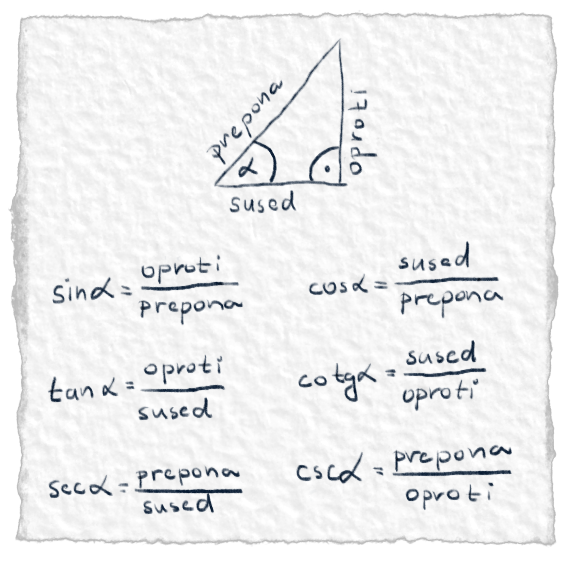 prepona
oproti
α
sused
sinα = oproti / prepona
cosα = sused / prepona
tanα = oproti / sused
cotgα = sused / oproti
secα = prepona / sused
cscα = prepona / oproti